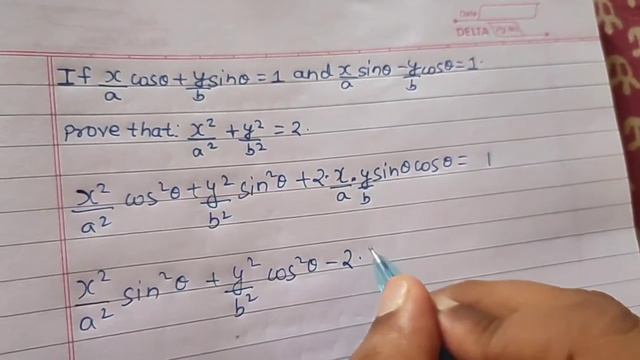 Date
DELTA
If x/a cosθ + y/b sinθ = 1 and x/a sinθ - y/b cosθ = 1.
prove that: x²/a² + y²/b² = 2.
x²/a² cos²θ + y²/b² sin²θ + 2·x/a·y/b sinθ cosθ = 1
x²/a² sin²θ + y²/b² cos²θ - 2·